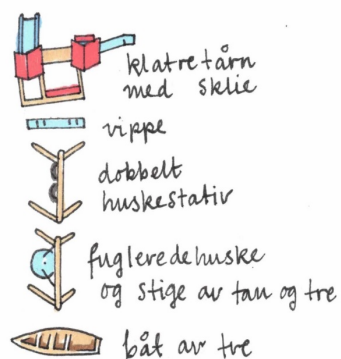 klatretårn
med sklie
vippe
dobbelt
huskestativ
fugleredehuske
og stige av tau og tre
båt av tre